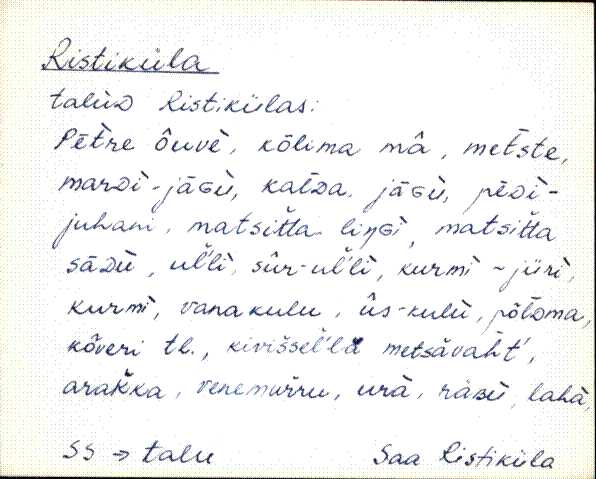 Ristiküla
talùD Ristikülas:
Pētre ôuvè, kōlima mâ, metste,
marDi-jāGù, kalDa jāGù, pēDi-
juhani, matsitta liŋGi, matsitta
sāDù, ulli, sūr-ulli, kurmi-jüri,
kurmi, vanakulu, ūs-kulù, pōlDma,
kōveri tl., kivissellä metsävaht',
arakka, venemurru, urà, räBù, lahà,
SS → talu Saa Ristiküla